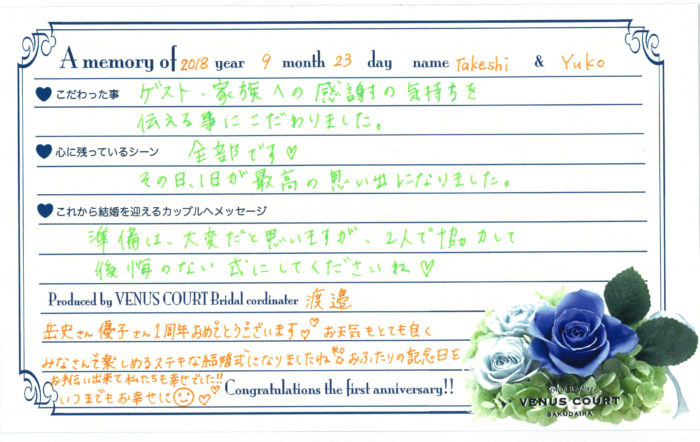 A memory of 2018 year 9 month 23 day name Takeshi & Yuko
こだわった事 ゲスト・家族への感謝の気持ちを
伝える事にこだわりました。
心に残っているシーン 全部です♡
その日、1日が最高の思い出になりました。
これから結婚を迎えるカップルへメッセージ
準備は、大変だと思いますが、2人で協力して
後悔のない式にしてくださいね♡
Produced by VENUS COURT Bridal cordinater 渡邉
岳史さん優子さん1周年おめでとうございます♡♡ お天気もとても良く
みなさんで楽しめるステキな結婚式になりましたね おふたりの記念日を
お手伝い出来て私たちも幸せでした!!
いつまでもお幸せに♡ Congratulations the first anniversary!!
VENUS COURT
SAKUDAIRA